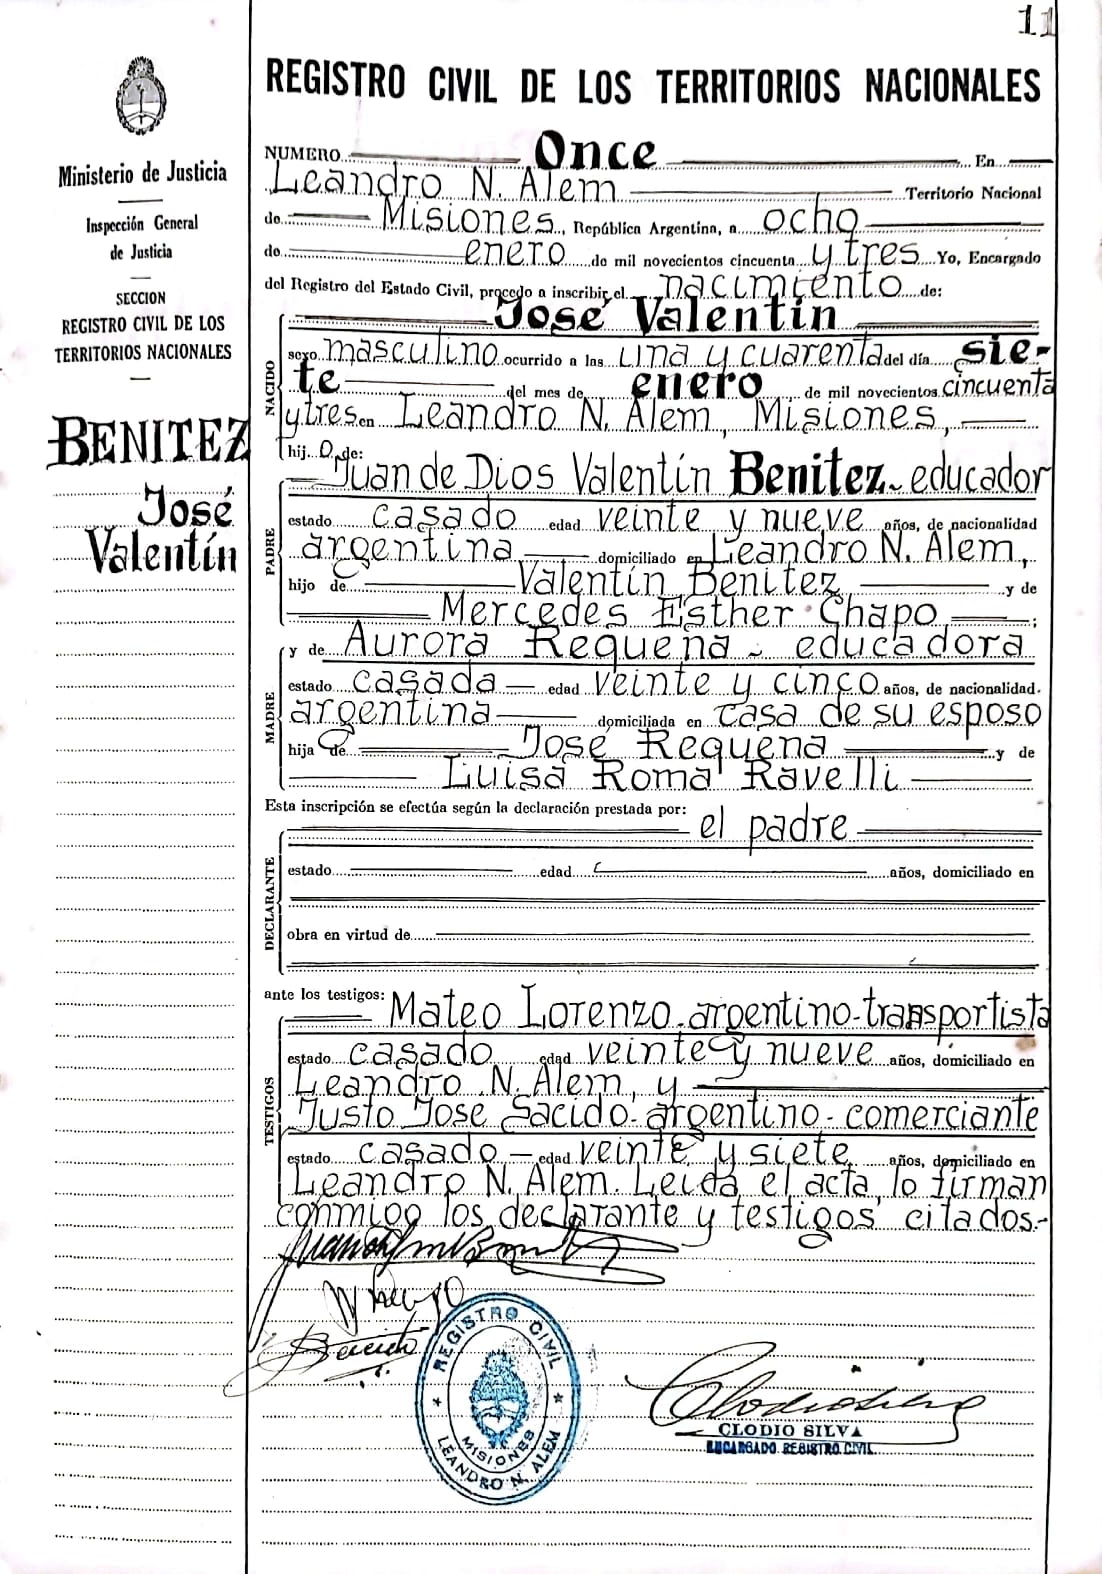 11
REGISTRO CIVIL DE LOS TERRITORIOS NACIONALES
Ministerio de Justicia
Inspección General
de Justicia
SECCION
REGISTRO CIVIL DE LOS
TERRITORIOS NACIONALES
BENITEZ
José
Valentín
NUMERO Once En
Leandro N. Alem Territorio Nacional
de Misiones, República Argentina, a ocho
de enero de mil novecientos cincuenta y tres Yo, Encargado
del Registro del Estado Civil, procedo a inscribir el nacimiento de:
José Valentín
NACIDO
sexo masculino ocurrido a las una y cuarenta del día sie-
te del mes de enero de mil novecientos cincuenta
y tres en Leandro N. Alem, Misiones,
hij o de:
Juan de Dios Valentín Benitez educador
PADRE
estado casado edad veinte y nueve años, de nacionalidad
argentina domiciliado en Leandro N. Alem,
hijo de Valentín Benitez, y de
Mercedes Esther Chapo ;
y de Aurora Requena - educadora
MADRE
estado casada edad veinte y cinco años, de nacionalidad
argentina domiciliada en casa de su esposo
hija de José Requena y de
Luisa Roma Ravelli
Esta inscripción se efectúa según la declaración prestada por: el padre
DECLARANTE
estado edad años, domiciliado en
obra en virtud de
ante los testigos: Mateo Lorenzo - argentino - transportista
TESTIGOS
estado casado edad veinte y nueve años, domiciliado en
Leandro N. Alem, y
Justo José Sacido - argentino - comerciante
estado casado edad veinte y siete años, domiciliado en
Leandro N. Alem. Leída el acta, lo firman
conmigo los declarante y testigos citados.-
REGISTRO CIVIL
MISIONES
LEANDRO N. ALEM
CLODIO SILVA
ENCARGADO REGISTRO CIVIL